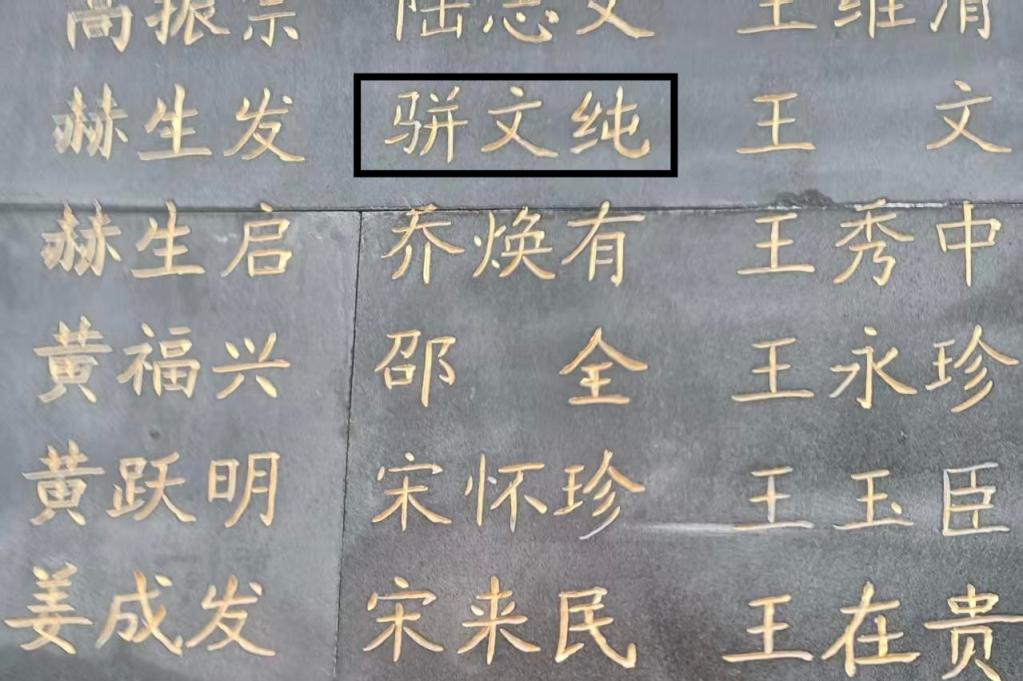 高振宗 陆志文 王维清
赫生发 骈文纯 王文
赫生启 乔焕有 王秀中
黄福兴 邵全 王永珍
黄跃明 宋怀珍 王玉臣
姜成发 宋来民 王在贵